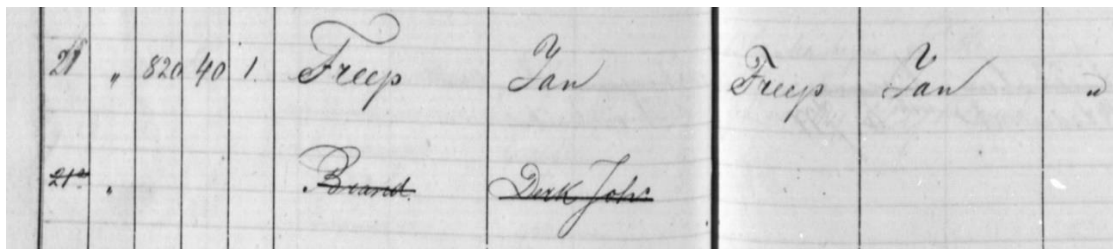 21 " 820 40 1. Freep Jan Freep Jan "
21 " Brand Derk Joh's